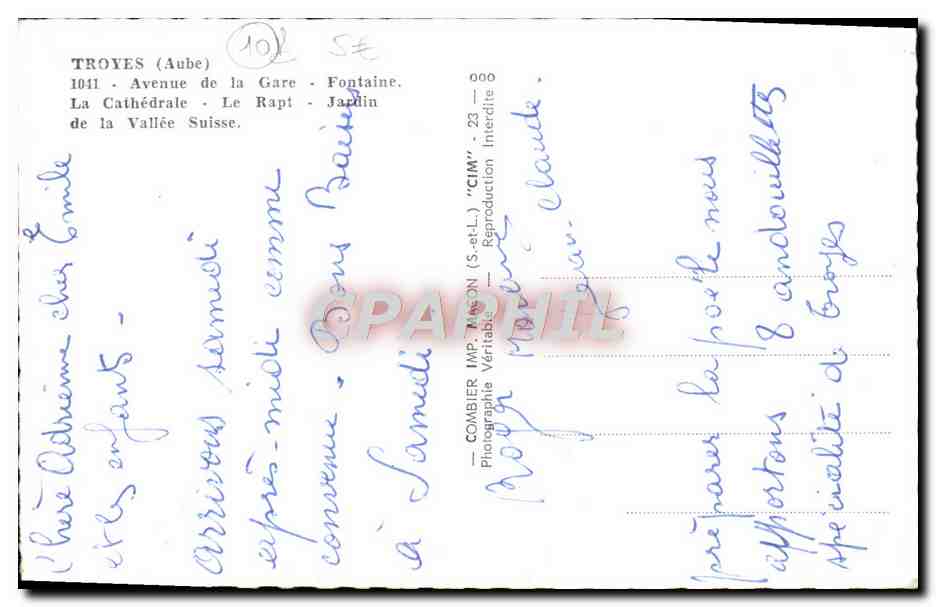 10€ 5€
TROYES (Aube)
1041 - Avenue de la Gare - Fontaine.
La Cathédrale - Le Rapt - Jardin
de la Vallée Suisse.
Chère Adrienne cher Emile
et les enfants -
arrivons samedi
après-midi comme
convenu. Bons Baisers
à Samedi
— COMBIER IMP. MACON (S.-et-L.) "CIM" - 23 — 000
Photographie Véritable — Reproduction Interdite
Roger
Jean-Claude.
préparer la poele nous
apportons 8 andouillettes
spécialité de Troyes
CPAPHIL